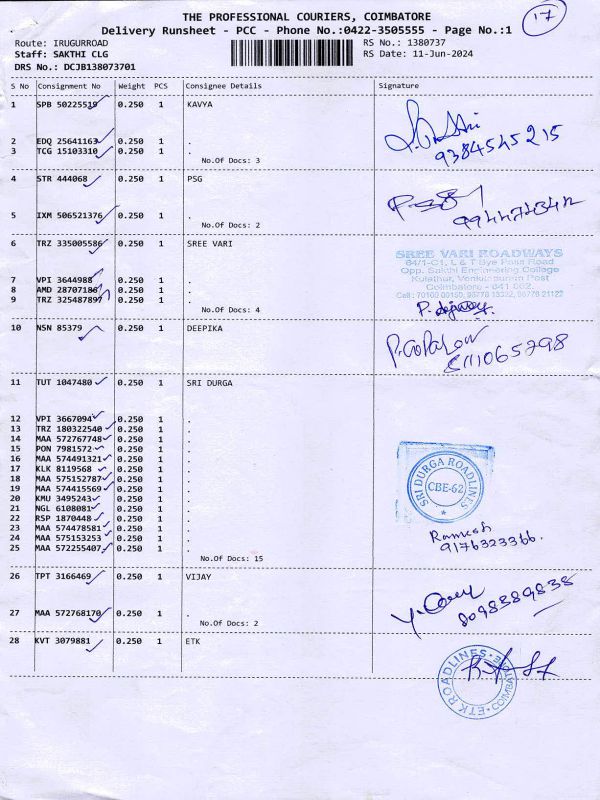 THE PROFESSIONAL COURIERS, COIMBATORE
17
Delivery Runsheet - PCC - Phone No.:0422-3505555 - Page No.:1
Route: IRUGURROAD
RS No.: 1380737
Staff: SAKTHI CLG
RS Date: 11-Jun-2024
DRS No.: DCJB138073701
S No Consignment No Weight PCS Consignee Details Signature
1 SPB 50225519 0.250 1 KAVYA
2 EDQ 25641163 0.250 1 .
3 TCG 15103310 0.250 1 .
9384545215
No.Of Docs: 3
4 STR 444068 0.250 1 PSG
5 IXM 506521376 0.250 1 .
No.Of Docs: 2
6 TRZ 335005586 0.250 1 SREE VARI
SREE VARI ROADWAYS
64/1-C1, L & T Bye Pass Road
Opp. Sakthi Engineering College
Coimbatore - 641 062.
7 VPI 3644988 0.250 1 .
8 AMD 28707186 0.250 1 .
9 TRZ 325487897 0.250 1 .
No.Of Docs: 4
10 NSN 85379 0.250 1 DEEPIKA
P. Gopalan
11 TUT 1047480 0.250 1 SRI DURGA
12 VPI 3667094 0.250 1 .
13 TRZ 180322540 0.250 1 .
14 MAA 572767748 0.250 1 .
15 PON 7981572 0.250 1 .
16 MAA 574491321 0.250 1 .
17 KLK 8119568 0.250 1 .
18 MAA 575152787 0.250 1 .
19 MAA 574415569 0.250 1 .
20 KMU 3495243 0.250 1 .
21 NGL 6108081 0.250 1 .
22 RSP 1870448 0.250 1 .
23 MAA 574478581 0.250 1 .
24 MAA 575153253 0.250 1 .
25 MAA 572255407 0.250 1 .
SRI DURGA ROADLINES
CBE-62
Ramesh
9176323366.
No.Of Docs: 15
26 TPT 3166469 0.250 1 VIJAY
8098389838
27 MAA 572768170 0.250 1 .
No.Of Docs: 2
28 KVT 3079881 0.250 1 ETK
ETK ROADLINES